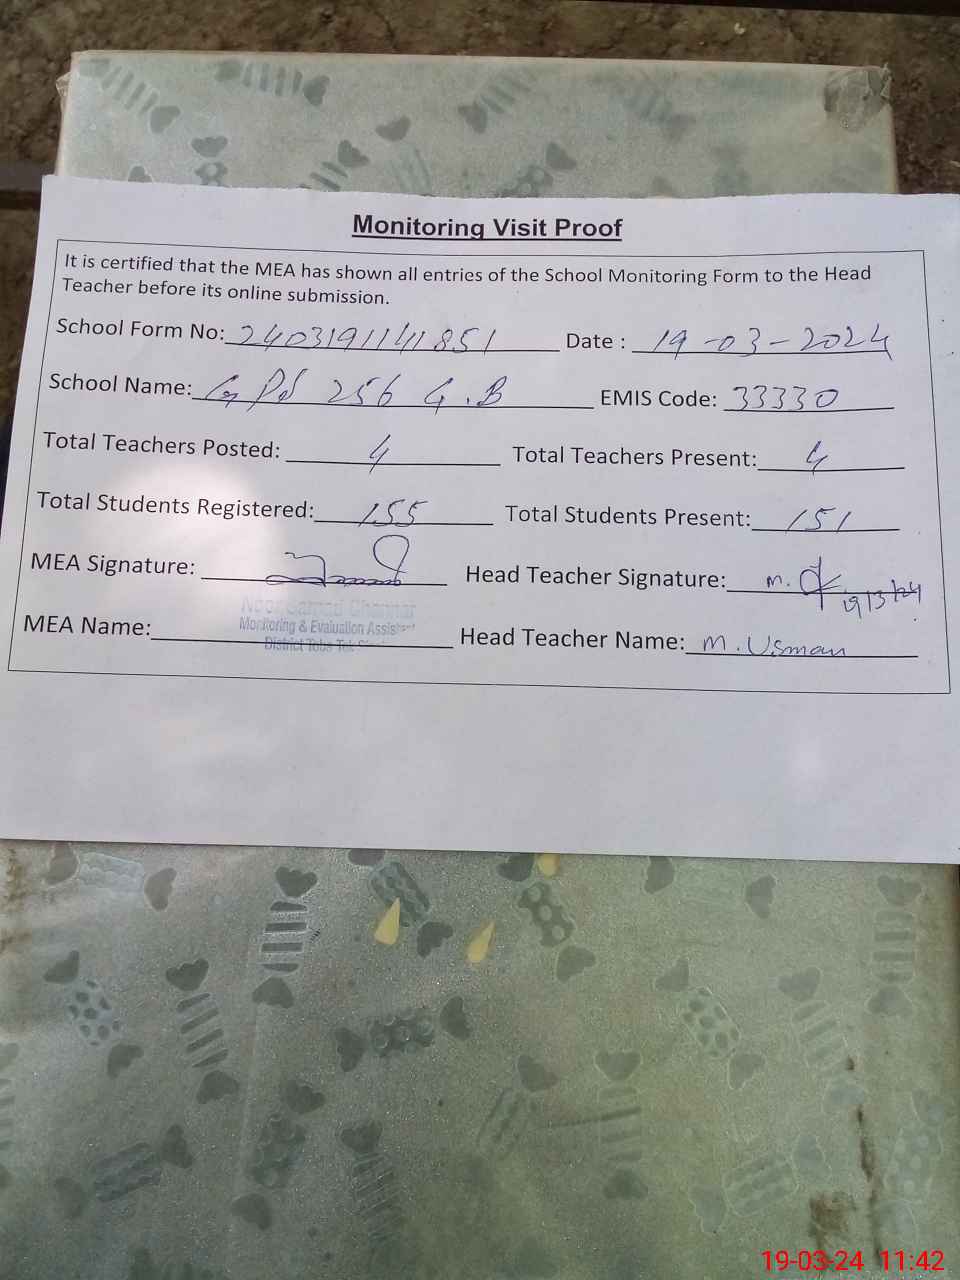 Monitoring Visit Proof
It is certified that the MEA has shown all entries of the School Monitoring Form to the Head
Teacher before its online submission.
School Form No: 2403191141851 Date : 19-03-2024
School Name: G PS 256 G.B EMIS Code: 33330
Total Teachers Posted: 4 Total Teachers Present: 4
Total Students Registered: 155 Total Students Present: 151
MEA Signature: Head Teacher Signature: 19/3/24
MEA Name: Monitoring & Evaluation Assistant
District Toba Tek Head Teacher Name: M. Usman
19-03-24 11:42